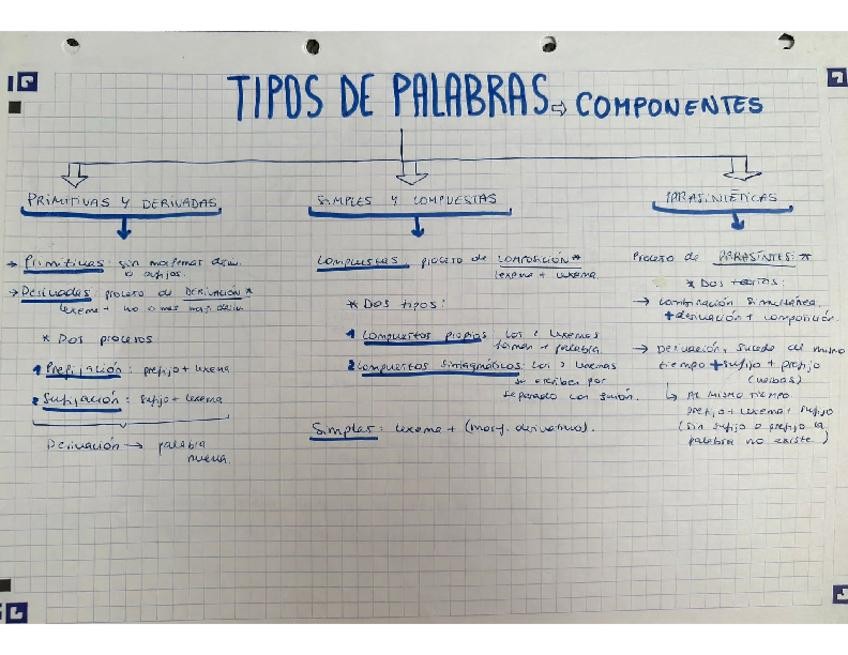 TIPOS DE PALABRAS ⇨ COMPONENTES
PRIMITIVAS Y DERIVADAS
→ Primitivas: sin morfemas deriv.
o afijos.
→ Derivadas: proceso de DERIVACIÓN *
lexema + uno o más
* Dos procesos
1 Prefijación: prefijo + lexema
2 Sufijación: sufijo + lexema
Derivación → palabra
nueva.
SIMPLES Y COMPUESTAS
Compuestas, proceso de COMPOSICIÓN *
lexema + lexema
* Dos tipos:
1 Compuestos propios: los 2 lexemas
forman 1 palabra
2 Compuestos sintagmáticos: los 2 lexemas
se escriben por
separado
Simples: lexema + (morf. derivativo).
PARASINTÉTICAS
Proceso de PARASÍNTES: *
* Dos teorías:
→ combinación simultánea
+ derivación + composición.
→ Derivación, sucede al mismo
tiempo + sufijo + prefijo
(verbos)
↳ Al mismo tiempo
prefijo + lexema + sufijo
(sin sufijo o prefijo la
palabra no existe)